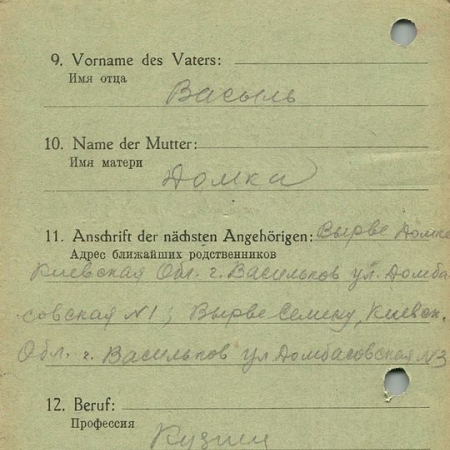 9. Vorname des Vaters:
Имя отца
Васыль
10. Name der Mutter:
Имя матери
Домка
11. Anschrift der nächsten Angehörigen: Вырве Домке
Адрес ближайших родственников
Киевская Обл. г. Васильков ул. Домба-
совская №1; Вырве Семену, Киевск.
Обл. г. Васильков ул Домбасовская №3
12. Beruf:
Профессия